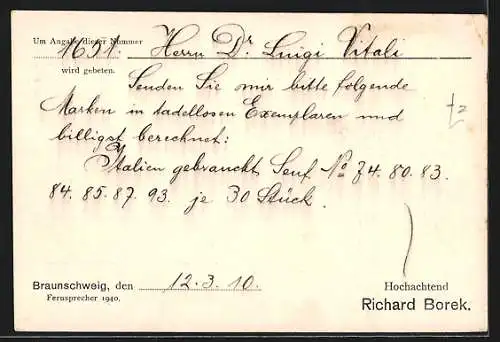 Um Angabe dieser Nummer
1651. Herrn Dr. Luigi Vitali
wird gebeten.
Senden Sie mir bitte folgende
Marken in tadellosen Exemplaren und
billigst berechnet:
Italien gebraucht Senf No 74. 80. 83.
84. 85. 87. 93. je 30 Stück.
Braunschweig, den 12. 3. 10.
Fernsprecher 1940.
Hochachtend
Richard Borek.